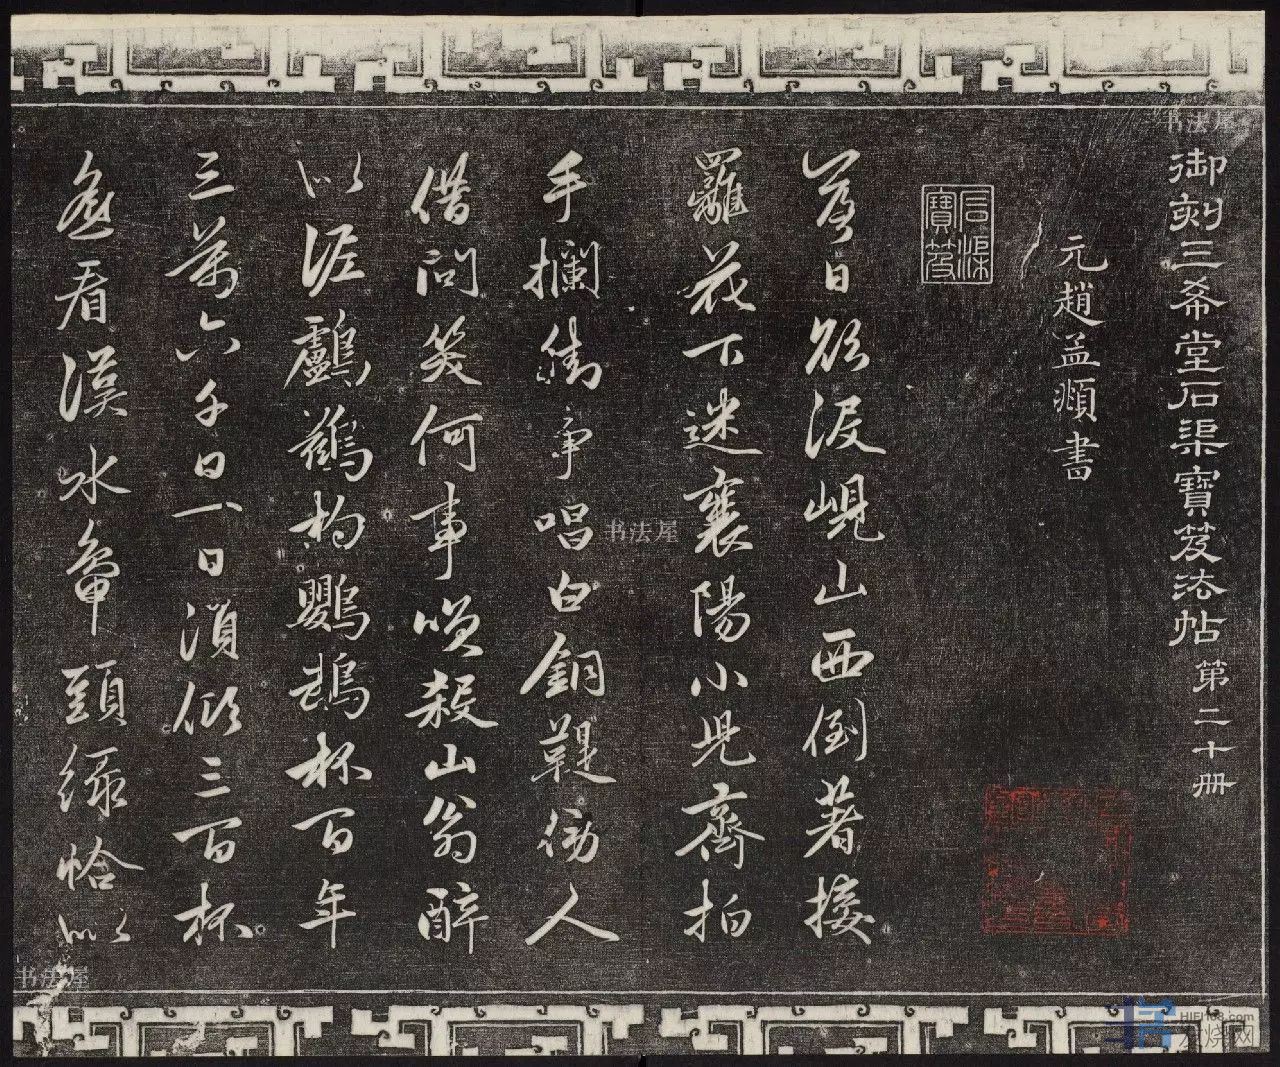 御刻三希堂石渠寶笈法帖 第二十册
元趙孟頫書
石渠寶笈
落日欲没峴山西倒著接
䍦花下迷襄陽小兒齊拍
手攔街爭唱白銅鞮傍人
借問笑何事咲殺山翁醉
似泥鸕鶿杓鸚鵡杯百年
三萬六千日一日須傾三百杯
遙看漢水鴨頭綠恰似
书法屋
书法屋
书法屋
HIFI168.com
发烧网